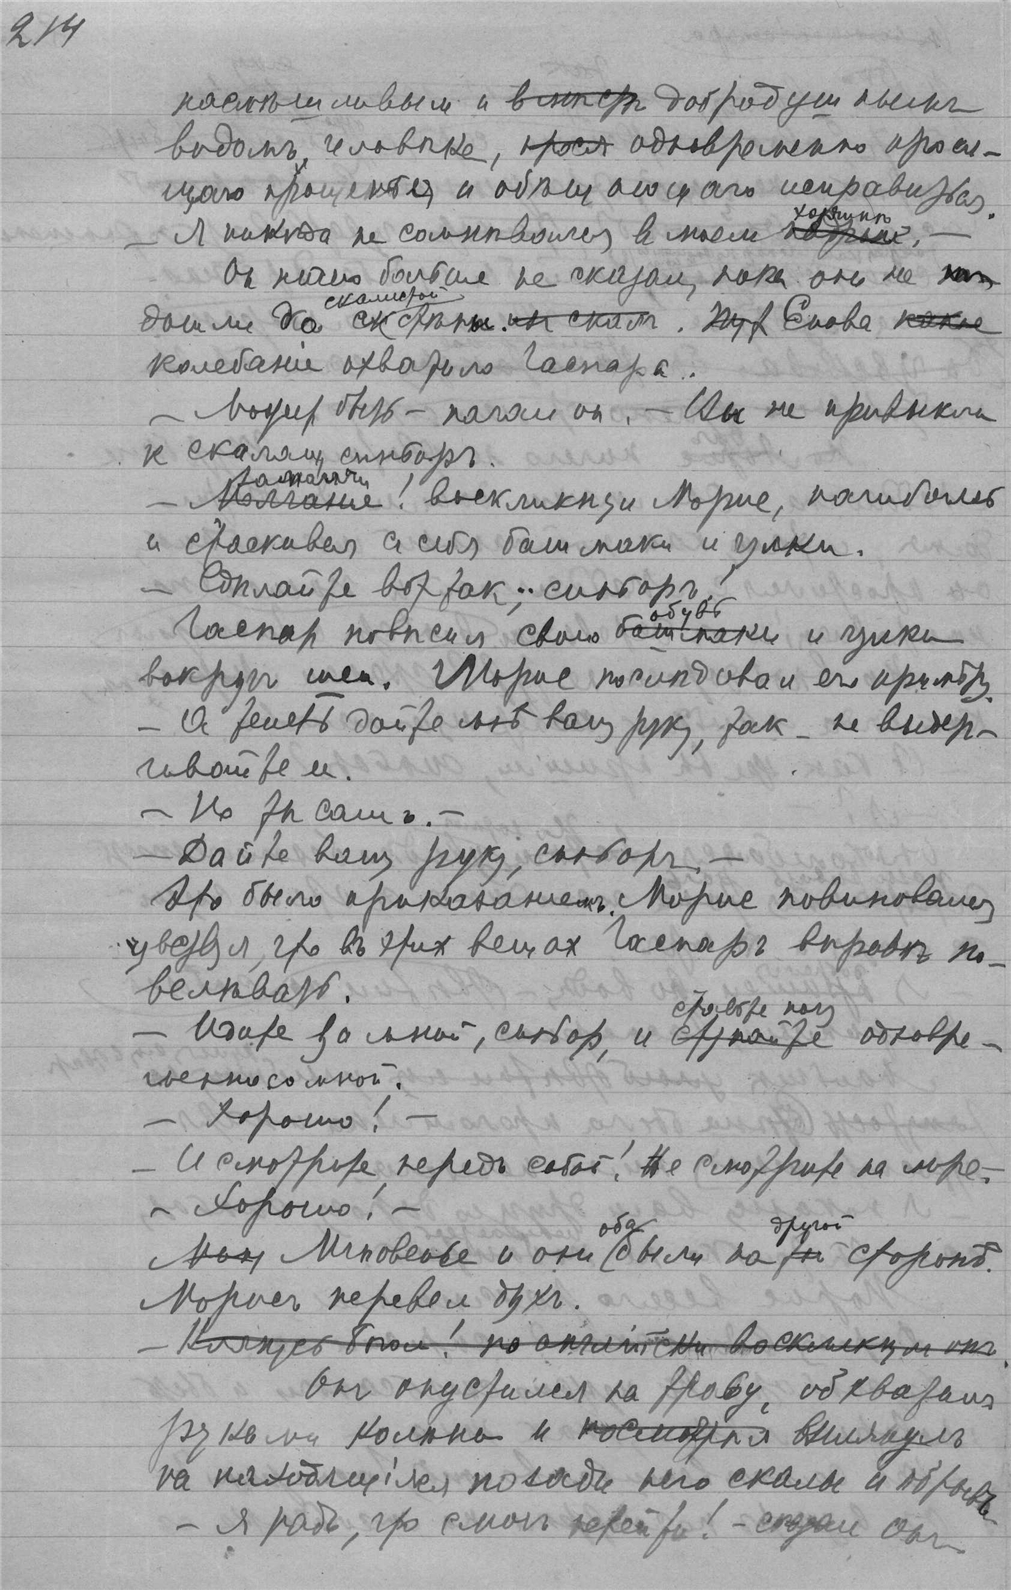 214
насмѣшливым и добродушнымъ
видомъ человѣка, одновременно прося-
щаго прощенья и обѣщающаго исправиться.
— Я никуда не сомнѣвался в моем —
Он ничего больше не сказал, пока они не
дошли до скалистой стѣны. Снова
колебаніе охватило Гаспара.
— Может быть — начал он. — Вы не привыкли
к скалам, синьоръ.
— Замолчи! воскликнул Морис, нагибаясь
и стаскивая с себя башмаки и чулки.
— Сдѣлайте вот так, синьоръ!
Гаспар повѣсил свою обувь и чулки
вокругъ шеи. Морис послѣдовал его примѣру.
— А теперь дайте мнѣ вашу руку, так — не выдер-
гивайте ее.
— Но ты самъ. —
— Дайте вашу руку, синьоръ —
Это было приказаніемъ. Морис повиновался
чувствуя, что въ этих вещах Гаспаръ вправѣ по-
велѣвать.
— Идите за мной, синьор, и ставьте ногу одновре-
менно со мной.
— Хорошо! —
— И смотрите передъ собой! Не смотрите на море —
— Хорошо! —
Мгновенье и они оба были на другой сторонѣ.
Морисъ перевел духъ.
— Клянусь Богом! по англійски воскликнул онъ.
Онъ опустился на траву, обхватилъ
руками колѣни и взглянулъ
на находящіяся позади него скалы и обрывъ
— Я радъ, что смогъ перейти! — сказал онъ